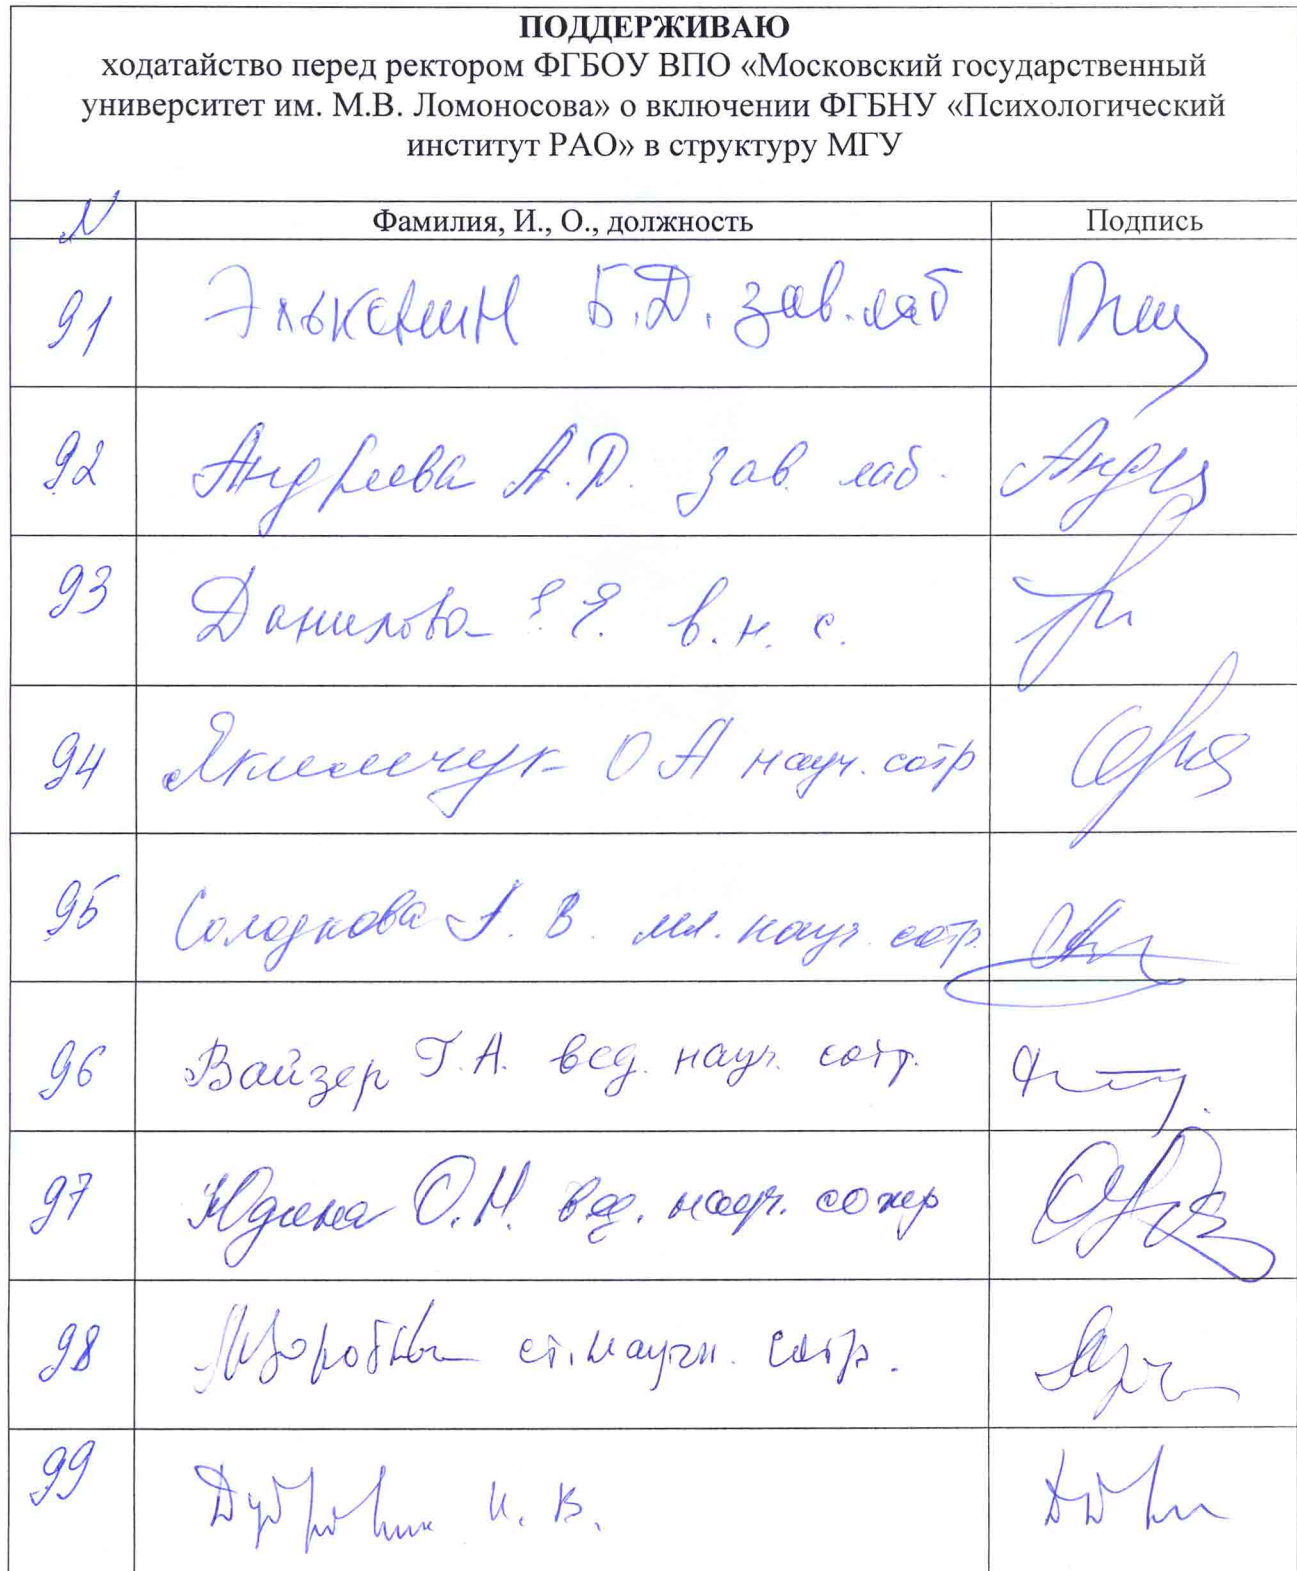 ПОДДЕРЖИВАЮ
ходатайство перед ректором ФГБОУ ВПО «Московский государственный
университет им. М.В. Ломоносова» о включении ФГБНУ «Психологический
институт РАО» в структуру МГУ
N Фамилия, И., О., должность Подпись
91 Эльконин Б.Д. зав. лаб
92 Андреева А.Д. зав. лаб.
93 Данилова Е.Е. в.н.с.
94 Якимчук О А науч. сотр
95 Солодкова А. В. мл. науч. сотр.
96 Вайзер Г.А. вед. науч. сотр.
97 Юдина О.Н. вед. науч. сотр
98 ст. научн. сотр.
99 Дубровина И. В.